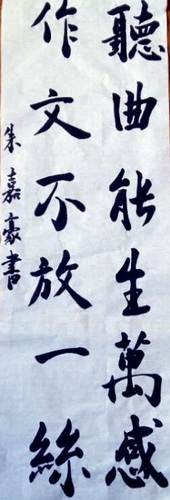 聽曲能生萬感
作文不放一絲
朱嘉豪書